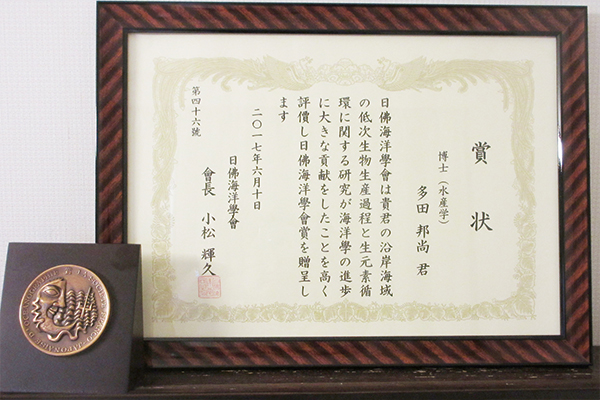 賞状
博士（水産学）
多田邦尚君
日佛海洋學會は貴君の沿岸海域
の低次生物生産過程と生元素循
環に関する研究が海洋學の進歩
に大きな貢献をしたことを高く
評價し日佛海洋學會賞を贈呈し
ます
二〇一七年六月十日
日佛海洋學會
會長 小松輝久
第四十六號